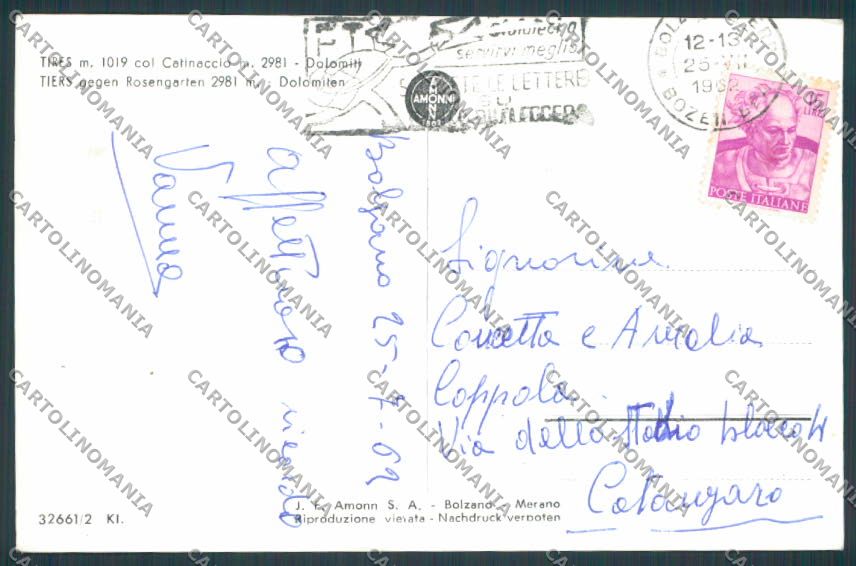 TIRES m. 1019 col Catinaccio m. 2981 - Dolomiti
TIERS gegen Rosengarten 2981 m. - Dolomiten
servirvi meglio
LE LETTERE
AMONN
BOLZANO
12-13
25-VII
1962
BOZEN
LIRE
POSTE ITALIANE
Bolzano 25-7-62
affettuoso ricordo
Signorine
Concetta e Amalia
Coppola
Via dello Stadio
Catanzaro
J. F. Amonn S. A. - Bolzano - Merano
Riproduzione vietata - Nachdruck verboten
32661/2 Kl.
CARTOLINOMANIA